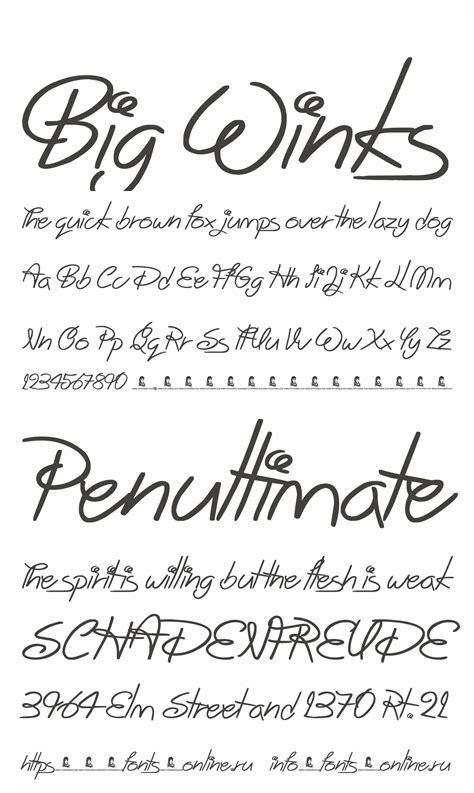 Big Winks
The quick brown fox jumps over the lazy dog
Aa Bb Cc Dd Ee Ff Gg Hh Ii Jj Kk Ll Mm
Nn Oo Pp Qq Rr Ss Tt Uu Vv Ww Xx Yy Zz
1234567890
Penultimate
The spirit is willing but the flesh is weak
SCHADENFREUDE
3964 Elm Street and 1370 Rt. 21
https fonts online.ru info fonts online.ru